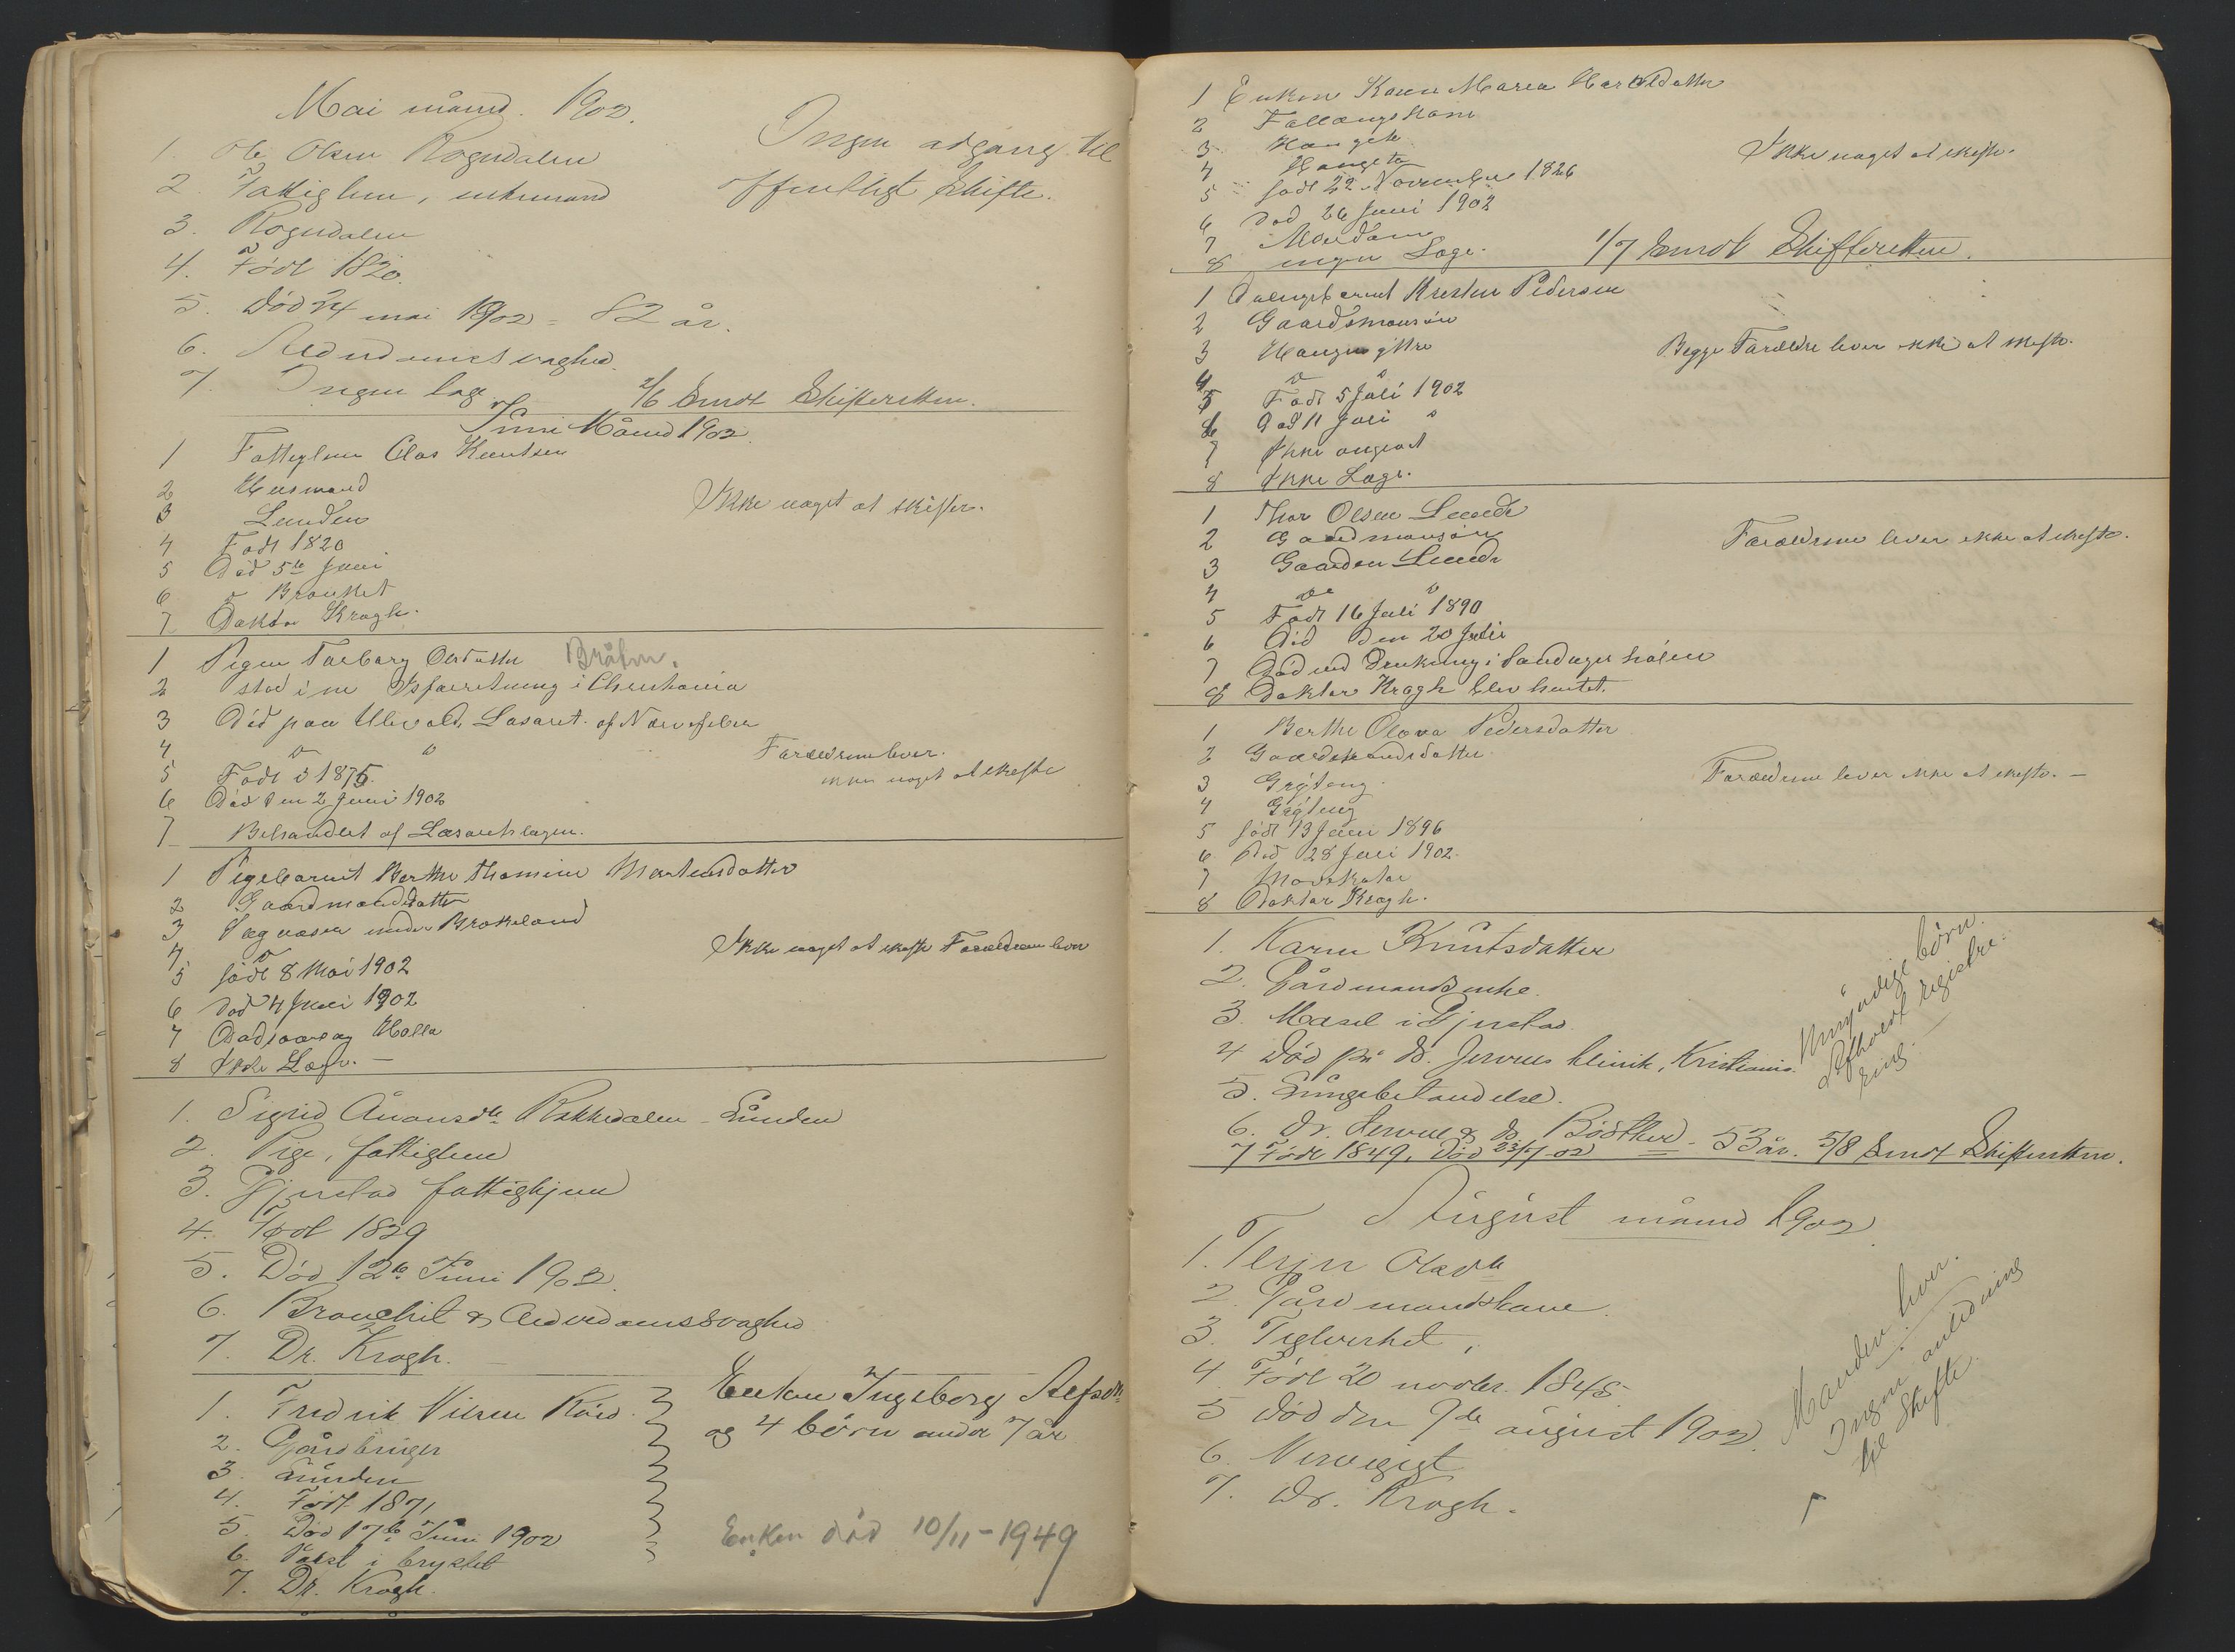 Mai måned. 1902.
1. Ole Olsen Rogndalen
2. Fattiglem, enkemand
3. Rogndalen
4. Født 1820.
5. Død 24 mai 1902 = 82 år.
6. Alderdomssvaghed.
7. Ingen læge
Ingen adgang til
offentligt Skifte.
2/6 Sendt Skifteretten.
Juni Måned 1902
1 Fattiglem Olas Knutsen
2 Husmand
3 Lunden
4 Født 1820
5 Død 5te Juni
6 Bronkit
7 Doktor Kragh.
Ikke noget at skifte.
1 Pigen Torborg Olsdatter Bråten.
2 stod i en Isforretning i Christiania
3 Død paa Ullevold Lasaret af Nervefeber
4 " "
5 Født i 1875.
6 Død den 2 Juni 1902
7 Behandlet af Lasaretslægen.
Forældrene lever.
ikke noget at skifte
1 Pigebarnet Berthe Thomine Mortensdatter
2 Gaardmandsdatter
3 under Brokeland
4 "
5 født 8 Mai 1902
6 død 4 Juni 1902
7 Dødsaarsag Holla
8 Ikke Læge. —
Ikke noget at skifte Forældrene lever
1. Sigrid Ånonsdtr Bakkedalen - Lunden
2. Pige, fattiglem
3. Gjerstad fattighjem
4. Født 1829
5. Død 12te Juni 1902.
6. Bronchit & Alderdomssvaghed
7. Dr. Kragh.
1. Fredrik Nilsen Röed.
2. Gårdbruger
3. Lunden
4. Født 1871
5. Død 17de Juni 1902
6. i brystet
7. Dr. Kragh.
Enken Ingeborg Alfsdtr
og 4 børn under 7 år
Enken død 10/11-1949
1 Enken Karen Maria Haraldsdatter
2 Follaugskone
3 Haugeto
4 Haugeto
5 født 22 November 1826
6 død 26 Juni 1902
7 Alderdom
8 ingen Læge.
Ikke noget at skifte.
1/7 Sendt Skifteretten.
1 Drengebarnet Kresten Pedersen
2 Gaardsmansøn
3
4 " "
5 Født 5 Juli 1902
6 Død 11 Juli "
7 Ikke angivet
8 Ikke Læge.
Begge Forældre lever ikke at skifte.
1 Thor Olsen Lunde
2 Gaardmansøn
3 Gaarden Lunde
4 " "
5 Født 16 Juli 1890
6 Død den 20 Juli
7 Død ved Drukning i Sandager hølen
8 Doktor Kragh blev hentet.
Forældrene lever ikke at skifte.
1 Berthe Olava Pedersdatter
2 Gaardmandsdatter
3 Grytting
4 Grytting
5 født 13 Juni 1896
6 Død 28 Juli 1902.
7
8 Doktor Kragh.
Forældrene lever ikke at skifte. —
1. Karen Knutsdatter
2. Gårdmandsenke.
3. Masel i Gjerstad
4 Død på Dr. Jervens klinik, Kristiania.
5. Lungebetændelse.
6. Dr. Jerven & Dr. Bödtker - 53 år.
7 Født 1849. Død 23/7-02
Myndige børn.
registre-
ring.
5/8 Sendt Skifteretten.
August måned 1902
1. Terjer Olavdtr
2. Gårdmandskone.
3. Teglverket,
4. Født 20 novbr. 1845.
5 Død den 9de august 1902.
6. Nervegigt
7. Dr. Kragh.
Manden lever.
Ingen anledning
til Skifte.